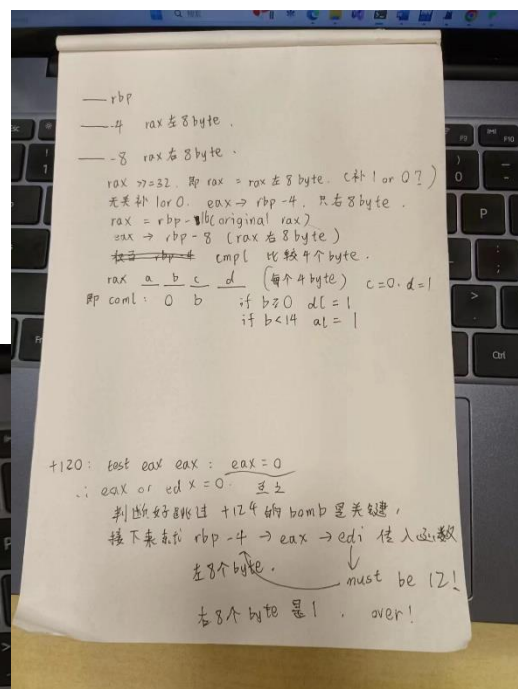 rbp
-4 rax左8byte.
-8 rax右8byte.
rax >>=32. 即rax = rax左8byte. (补1 or 0?)
无关补1 or 0. eax→ rbp-4. 只右8byte.
rax = rbp-16(original rax)
eax → rbp-8 (rax右8byte)
rbp-4 cmpl 比较4个byte.
rax a b c d (每个4byte) c=0. d=1
即coml: 0 b if b≥0 dl=1
if b<14 al=1
+120: test eax eax: eax=0
∴ eax or edx=0.
判断好跳过+124的bomb是关键,
接下来 rbp-4→eax→edi传入函数
左8个byte. must be 12!
右8个byte是1. over!
Ctrl
P